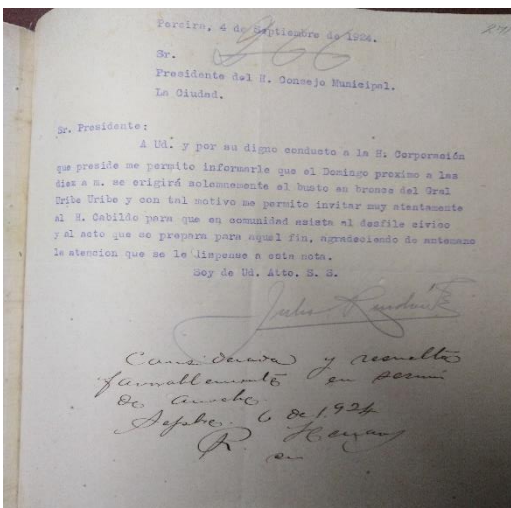 Pereira, 4 de Septiembre de 1924.
Sr.
Presidente del H. Consejo Municipal.
La Ciudad.
Sr. Presidente:
A Ud. y por su digno conducto a la H. Corporación
que preside me permito informarle que el Domingo proximo a las
diez a m. se erigirá solemnemente el busto en bronce del Gral
Uribe Uribe y con tal motivo me permito invitar muy atentamente
al H. Cabildo para que en comunidad asista al desfile civico
y al acto que se prepara para aquel fin, agradeciendo de antemano
la atencion que se le dispense a esta nota.
Soy de Ud. Atto. S. S.
Julio
Considerada y resuelta
favorablemente en sesión
de anoche
Sepbre. 6 de 1.924
R. Henao